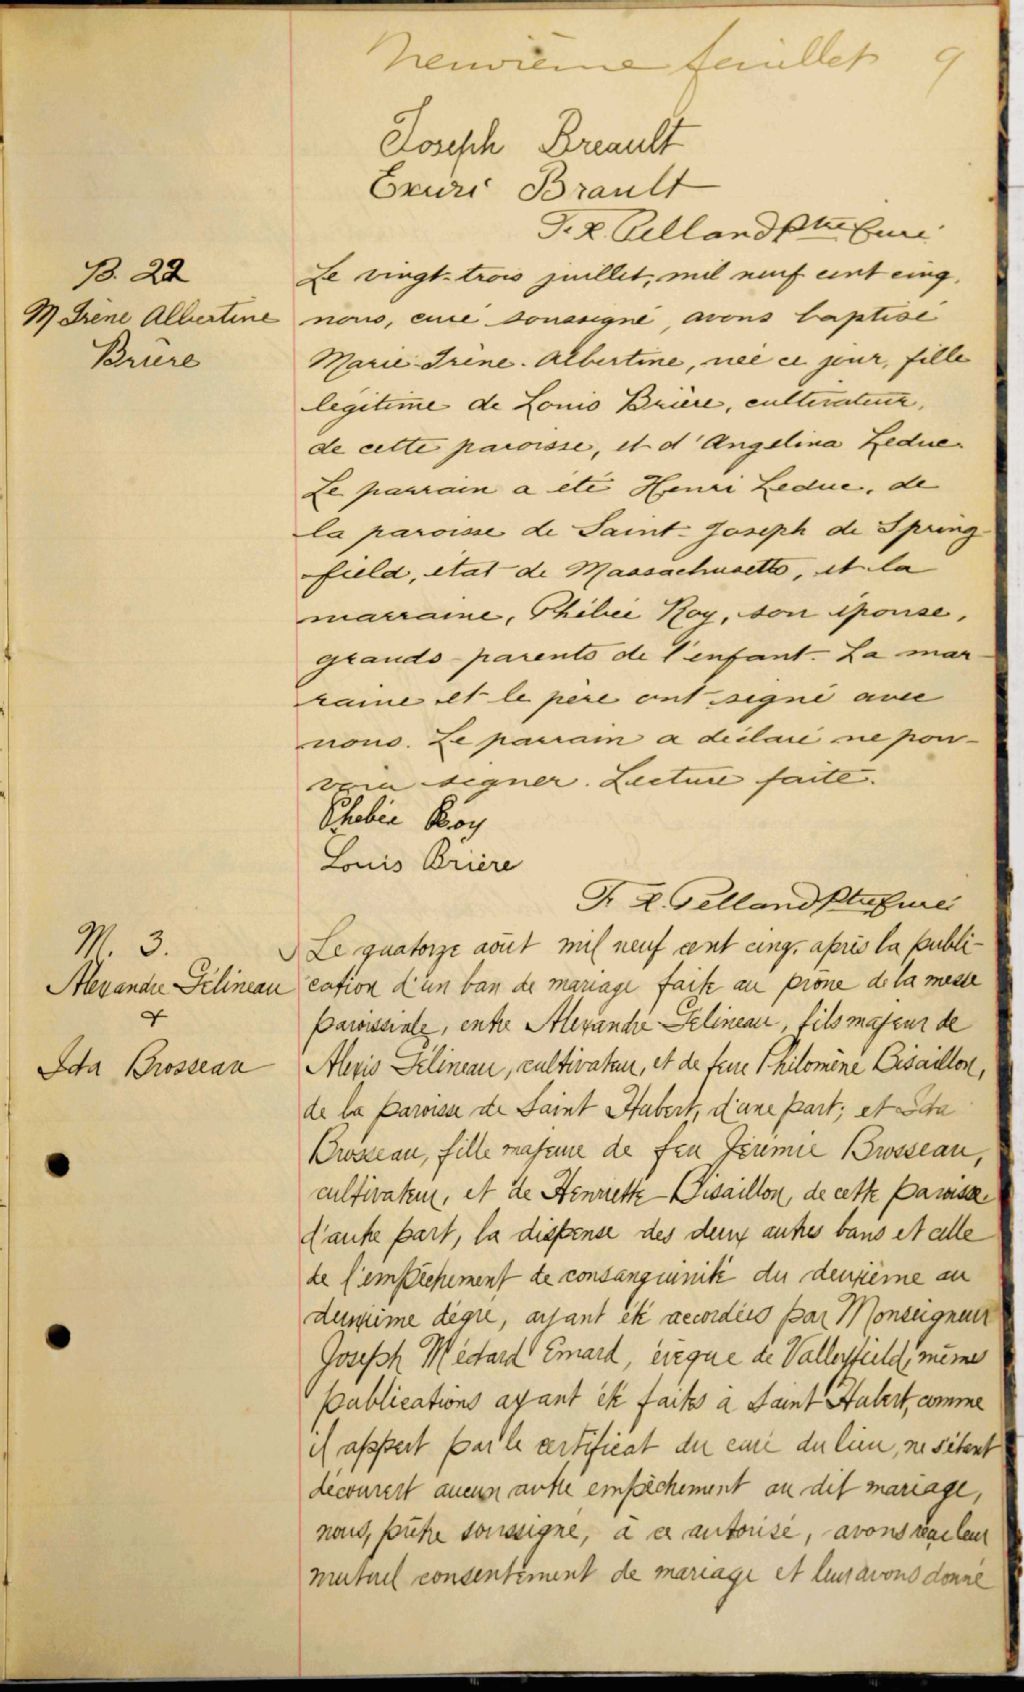 Neuvième feuillet 9
Joseph Breault
Brault
F. X. Pelland ptre Curé
B. 22
M Irène Albertine
Brière
Le vingt-trois juillet, mil neuf cent cinq,
nous, curé soussigné, avons baptisé
Marie-Irène-Albertine, née ce jour, fille
légitime de Louis Brière, cultivateur,
de cette paroisse, et d'Angelina Leduc.
Le parrain a été Henri Leduc, de
la paroisse de Saint-Joseph de Spring-
field, état de Massachusetts, et la
marraine, Phébée Roy, son épouse,
grands-parents de l'enfant. La mar-
raine et le père ont signé avec
nous. Le parrain a déclaré ne pou-
voir signer. Lecture faite.
Phebée Roy
Louis Brière
F. X. Pelland Ptre Curé
M. 3.
Alexandre Gélineau
&
Ida Brosseau
Le quatorze août mil neuf cent cinq, après la publi-
cation d'un ban de mariage faite au prône de la messe
paroissiale, entre Alexandre Gélineau, fils majeur de
Alexis Gélineau, cultivateur, et de feue Philomène Bisaillon,
de la paroisse de Saint Hubert, d'une part; et Ida
Brosseau, fille majeure de feu Jérémie Brosseau,
cultivateur, et de Henriette Bisaillon, de cette paroisse
d'autre part, la dispense des deux autres bans et celle
de l'empêchement de consanguinité du deuxième au
deuxième dégré, ayant été accordées par Monseigneur
Joseph Médard Emard, évêque de Valleyfield, mêmes
publications ayant été faites à Saint Hubert, comme
il appert par le certificat du curé du lieu, ne s'étant
découvert aucun autre empêchement au dit mariage,
nous, prêtre soussigné, à ce autorisé, avons reçu leur
mutuel consentement de mariage et leur avons donné